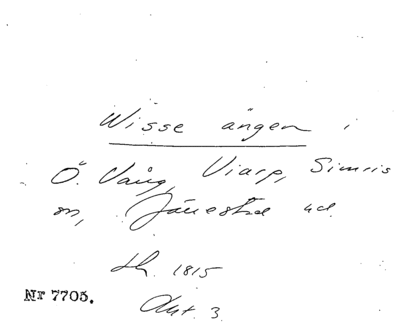 Wisse ängen i
Ö. Vång, Viarp, Simris
m, Järestad hd.
1815
Nr 7705.
Akt. 3